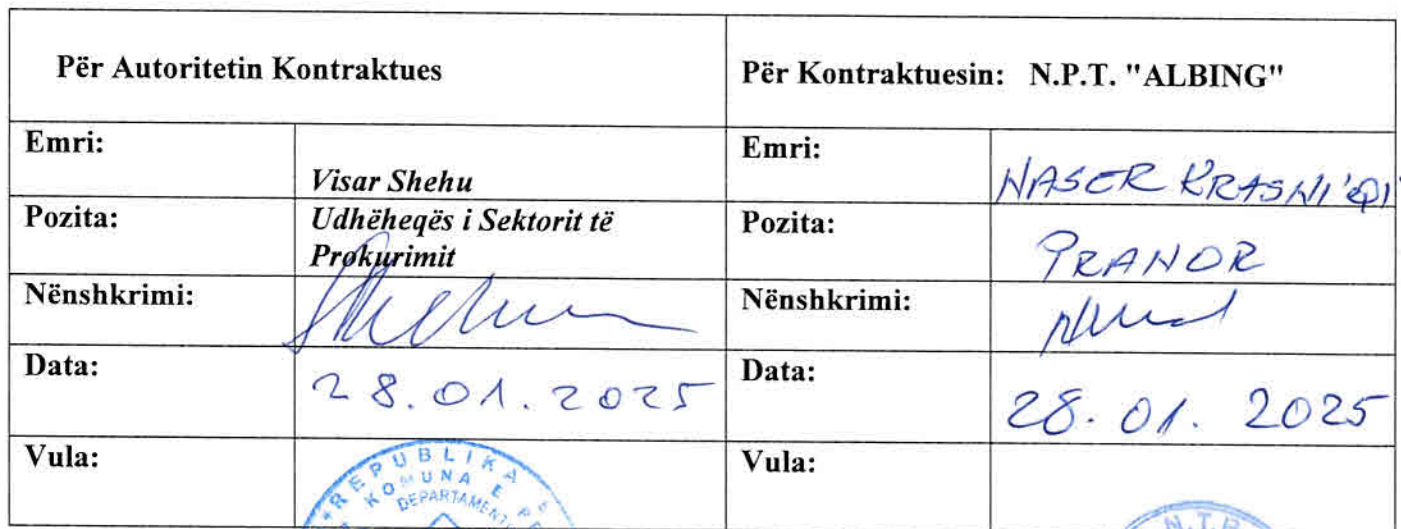 Për Autoritetin Kontraktues
Për Kontraktuesin: N.P.T. "ALBING"
Emri:
Visar Shehu
Emri:
NASER KRASNI'QI
Pozita:
Udhëheqës i Sektorit të
Prokurimit
Pozita:
PRANOR
Nënshkrimi:
Nënshkrimi:
Data:
28.01.2025
Data:
28.01.2025
Vula:
REPUBLIKA
KOMUNA E
DEPARTAMENT
Vula:
N.T.P